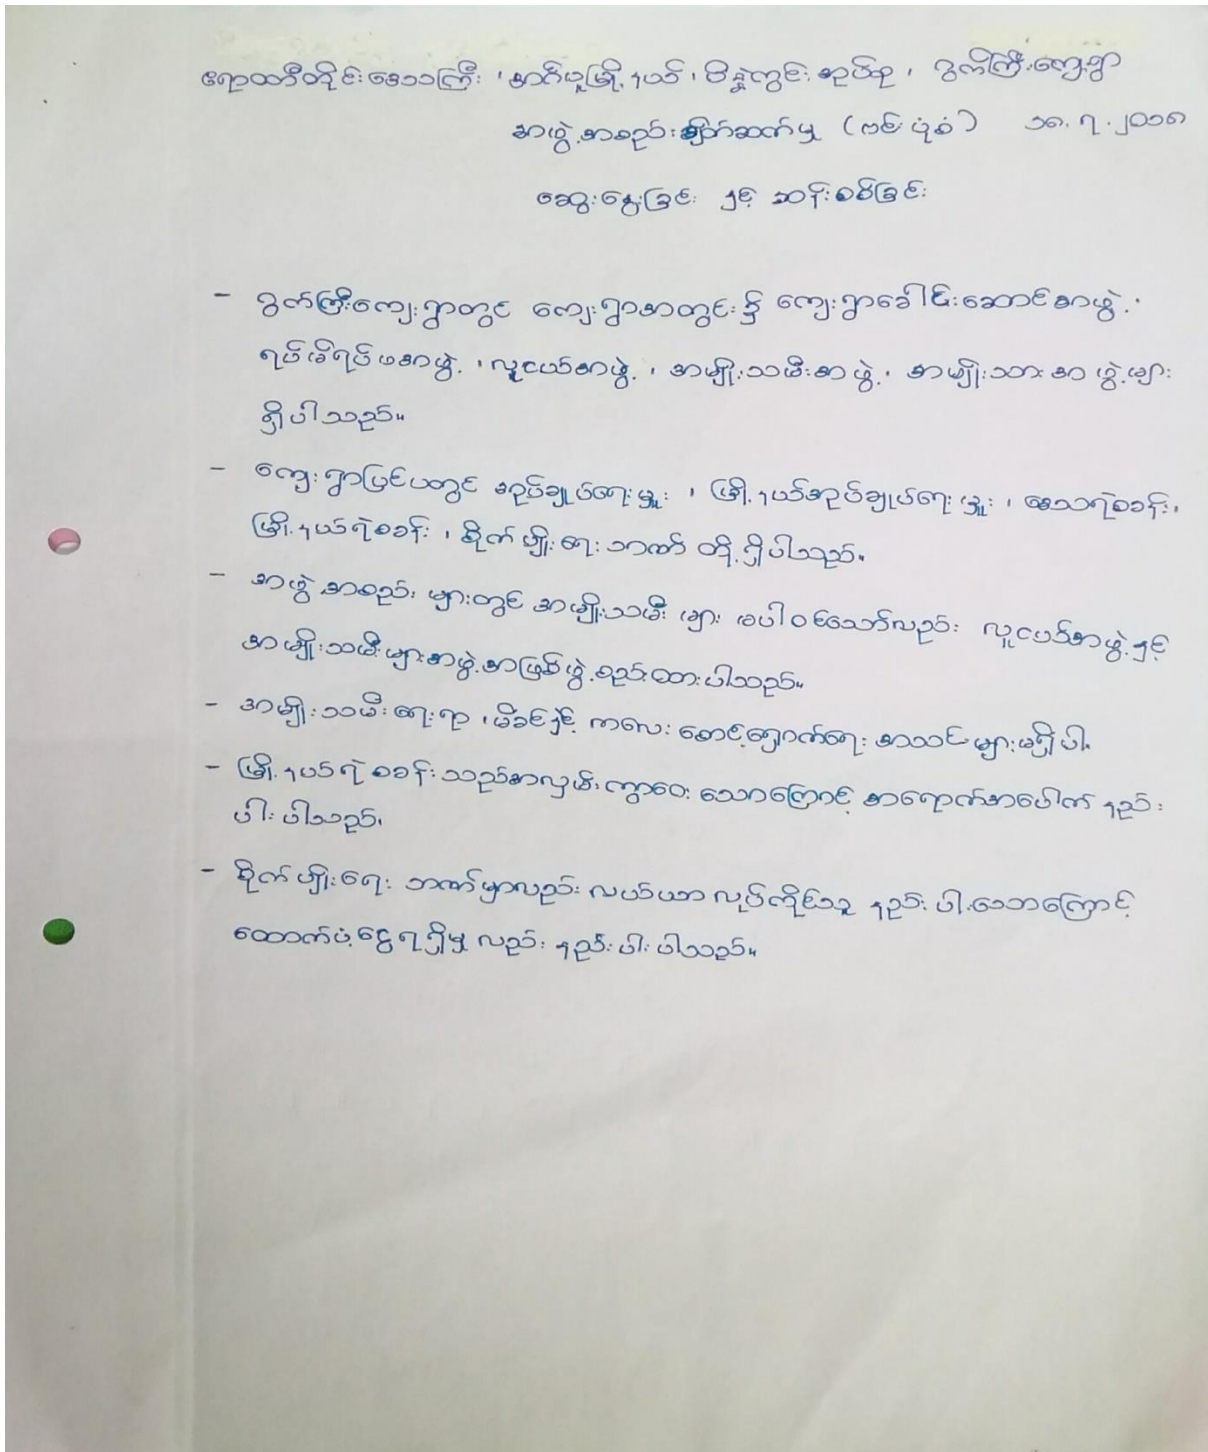 ဧရာဝတီတိုင်းဒေသကြီး ၊ အင်္ဂပူမြို့နယ် ၊ ဗိန္နွဲကွင်း အုပ်စု ၊ ဂွက်ကြီးကျေးရွာ
အဖွဲ့အစည်း ချိတ်ဆက်မှု ( ဗင်း ပုံစံ ) ၁၈.၇.၂၀၁၈
ဆွေးနွေးခြင်း နှင့် ဆန်းစစ်ခြင်း
- ဂွက်ကြီးကျေးရွာတွင် ကျေးရွာအတွင်း ၌ ကျေးရွာခေါင်းဆောင်အဖွဲ့ ၊
ရပ်မိရပ်ဖအဖွဲ့ ၊ လူငယ်အဖွဲ့ ၊ အမျိုးသမီးအဖွဲ့ ၊ အမျိုးသားအဖွဲ့များ
ရှိပါသည်။
- ကျေးရွာပြင်ပတွင် အုပ်ချုပ်ရေးမှူး ၊ မြို့နယ်အုပ်ချုပ်ရေးမှူး ၊ ဒေသရဲစခန်း ၊
မြို့နယ်ရဲစခန်း ၊ စိုက်ပျိုးရေးဘဏ် တို့ရှိပါသည်။
- အဖွဲ့အစည်း များတွင် အမျိုးသမီး များ မပါဝင်သော်လည်း လူငယ်အဖွဲ့ နှင့်
အမျိုးသမီးများအဖွဲ့အဖြစ်ဖွဲ့စည်းထားပါသည်။
- အမျိုးသမီးရေးရာ ၊ မိခင်နှင့် ကလေး စောင့်ရှောက်ရေး အသင်းများမရှိပါ။
- မြို့နယ်ရဲစခန်းသည်အလှမ်းကွာဝေး သောကြောင့် အရောက်အပေါက် နည်း
ပါးပါသည်။
- စိုက်ပျိုးရေး ဘဏ်မှာလည်း လယ်ယာလုပ်ကိုင်သူ နည်းပါးသောကြောင့်
ထောက်ပံ့ငွေရရှိမှု လည်း နည်းပါး ပါသည်။